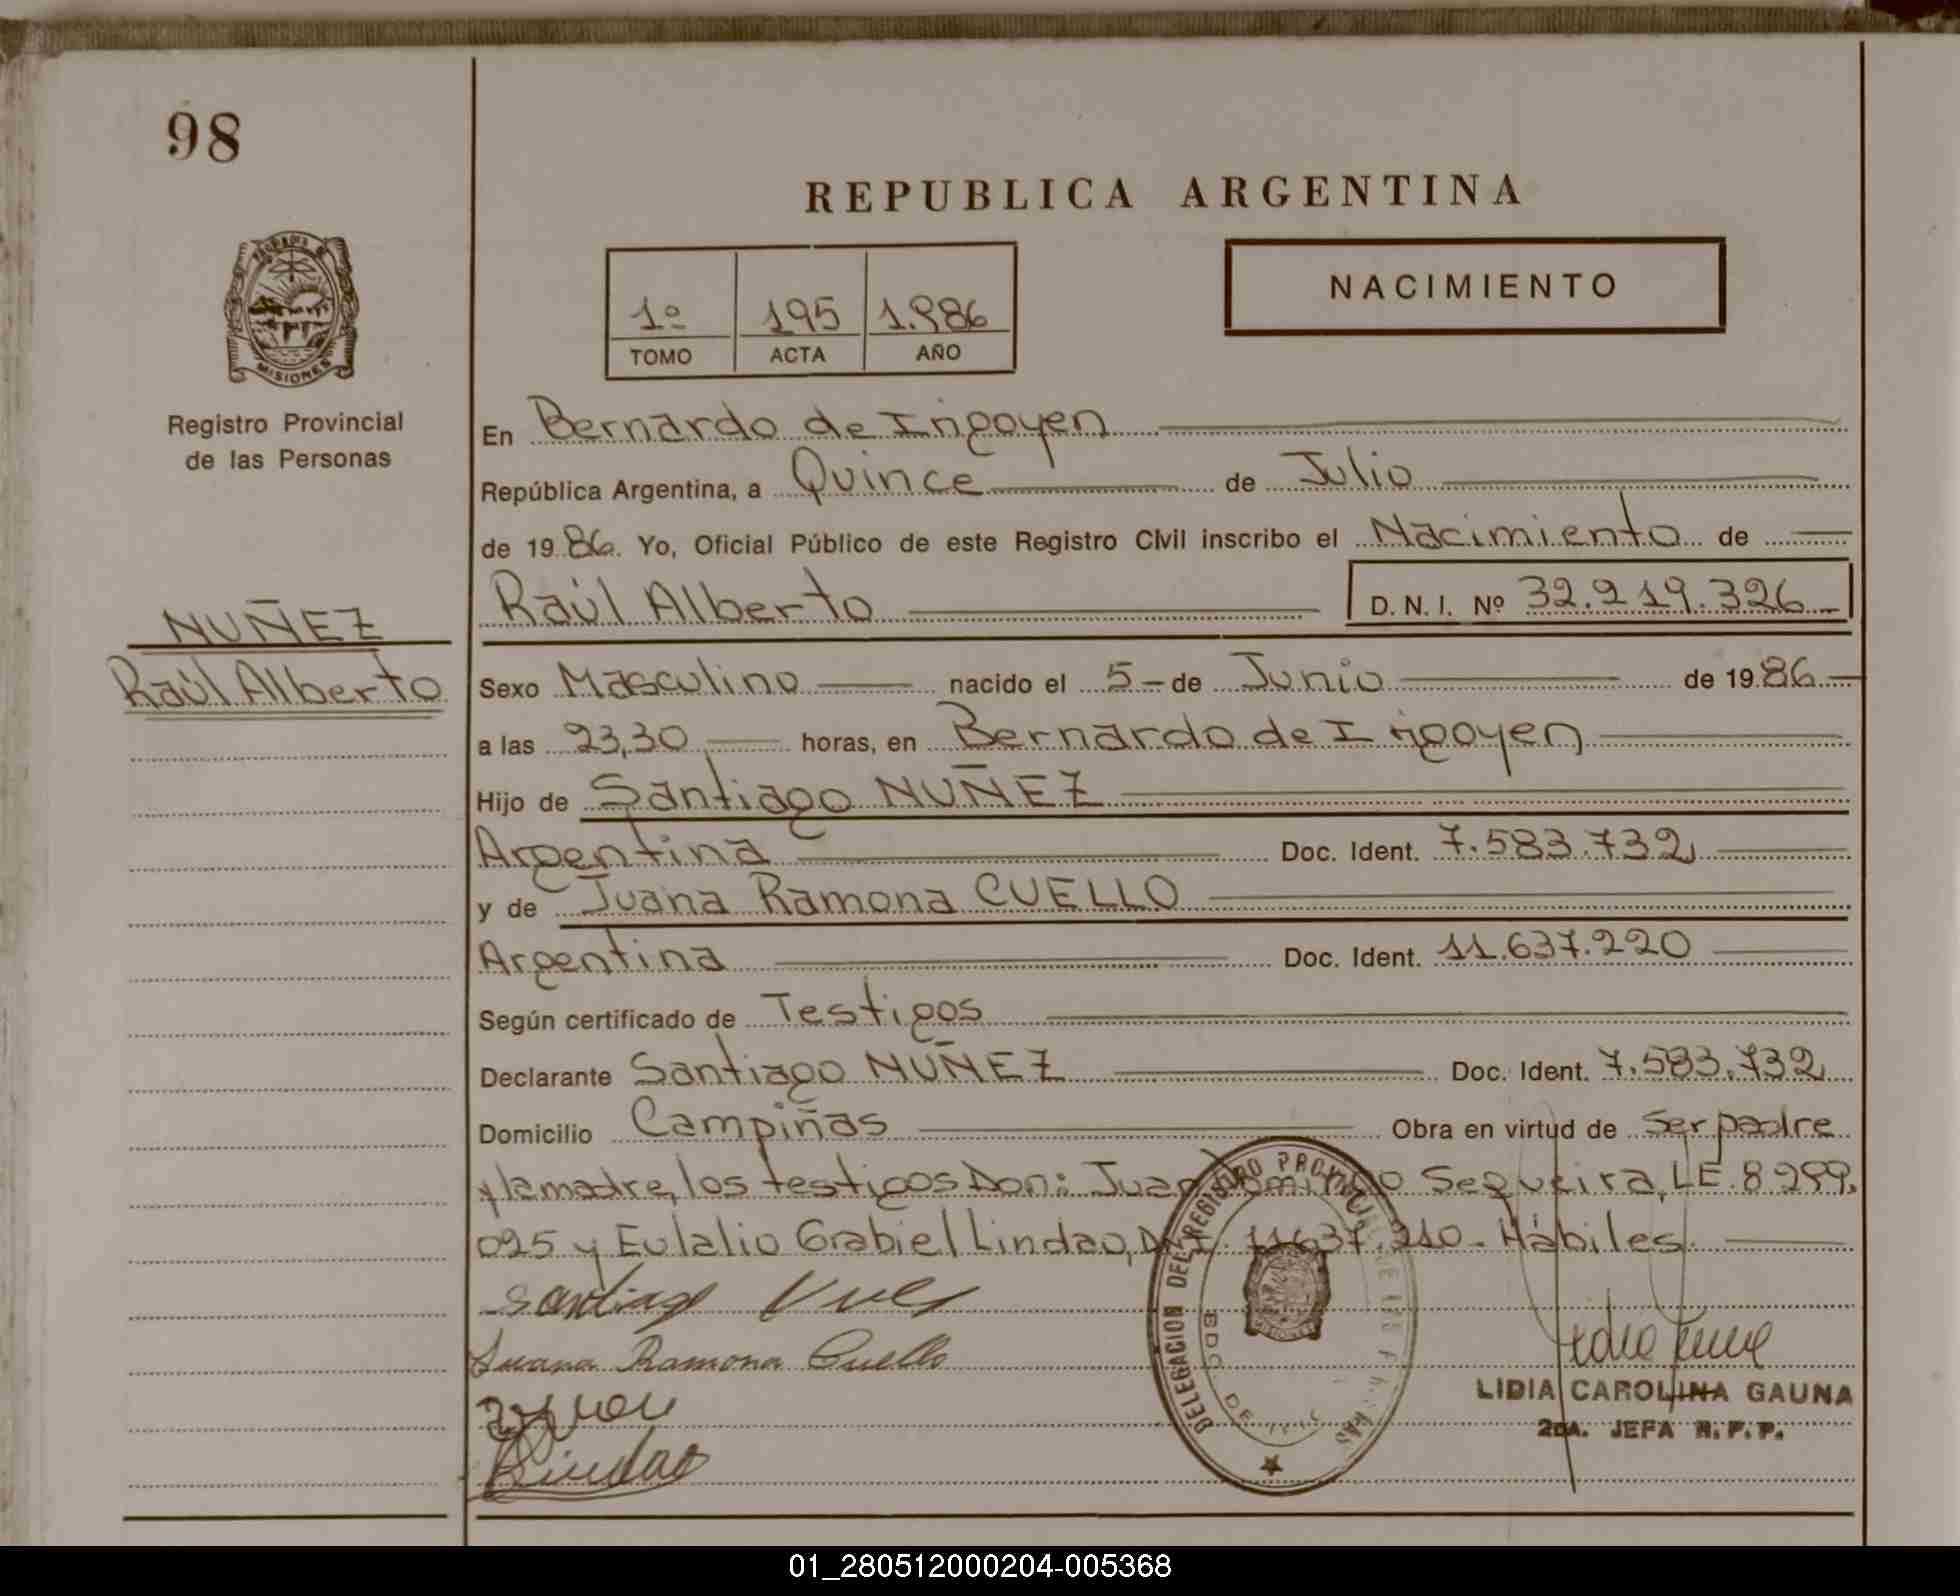 98
REPUBLICA ARGENTINA
PROVINCIA DE
MISIONES
Registro Provincial
de las Personas
1º 195 1.986
TOMO ACTA AÑO
NACIMIENTO
En Bernardo de Irigoyen
República Argentina, a Quince de Julio
de 1986. Yo, Oficial Público de este Registro Civil inscribo el Nacimiento de
Raúl Alberto D. N. I. Nº 32.219.326
NUÑEZ
Raúl Alberto
Sexo Masculino nacido el 5 - de Junio de 1986
a las 23,30 horas, en Bernardo de Irigoyen
Hijo de Santiago NUÑEZ
Argentina Doc. Ident. 7.583.732
y de Juana Ramona CUELLO
Argentina Doc. Ident. 11.637.220
Según certificado de Testigos
Declarante Santiago NUÑEZ Doc. Ident. 7.583.732
Domicilio Campiñas Obra en virtud de ser padre
y la madre, los testigos Don: Juan Domingo Sequeira, LE. 8 299.
025 y Eulalio Grabiel Lindao, D.N.I. 11637.210 - Hábiles.
Santiago
Juana Ramona Cuello
Lindao
DELEGACION DEL REGISTRO PROVINCIAL DE LAS PERSONAS
BDO. DE IRIG
LIDIA CAROLINA GAUNA
2DA. JEFA R. P. P.
01_280512000204-005368